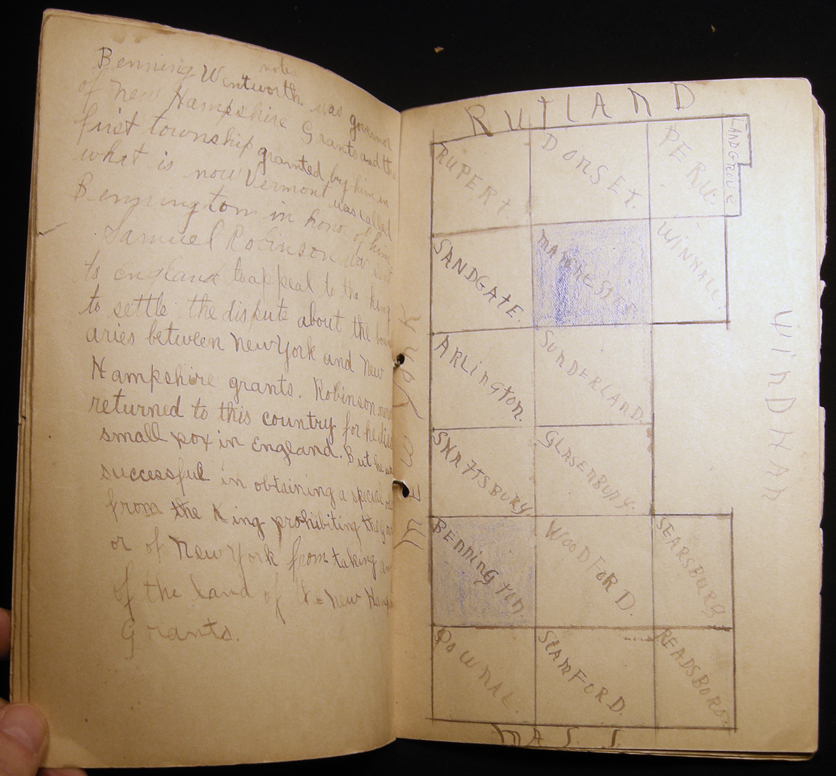 notes
Benning Wentworth was governor
of New Hampshire Grants and the
first township granted by him in
what is now Vermont was called
Bennington in honor of him
Samuel Robinson
to england to appeal to the king
to settle the dispute about the
aries between new York and New
Hampshire grants. Robinson
returned to this country for he died
small pox in England. But he
successful in obtaining a special
from the King prohibiting the
or of New York from taking
of the land of the New
Grants.
RUTLAND
RUPERT
DORSET.
PERU.
LANDGROVE
SANDGATE.
MANCHESTER
WINHALL.
ARLINGTON.
SUNDERLAND.
SHAFTSBURY
GLASENBURY.
BENNINGTON.
WOODFORD.
SEARSBURG.
POWNAL.
STAMFORD.
READSBORO.
NEW YORK
WINDHAM
MASS.